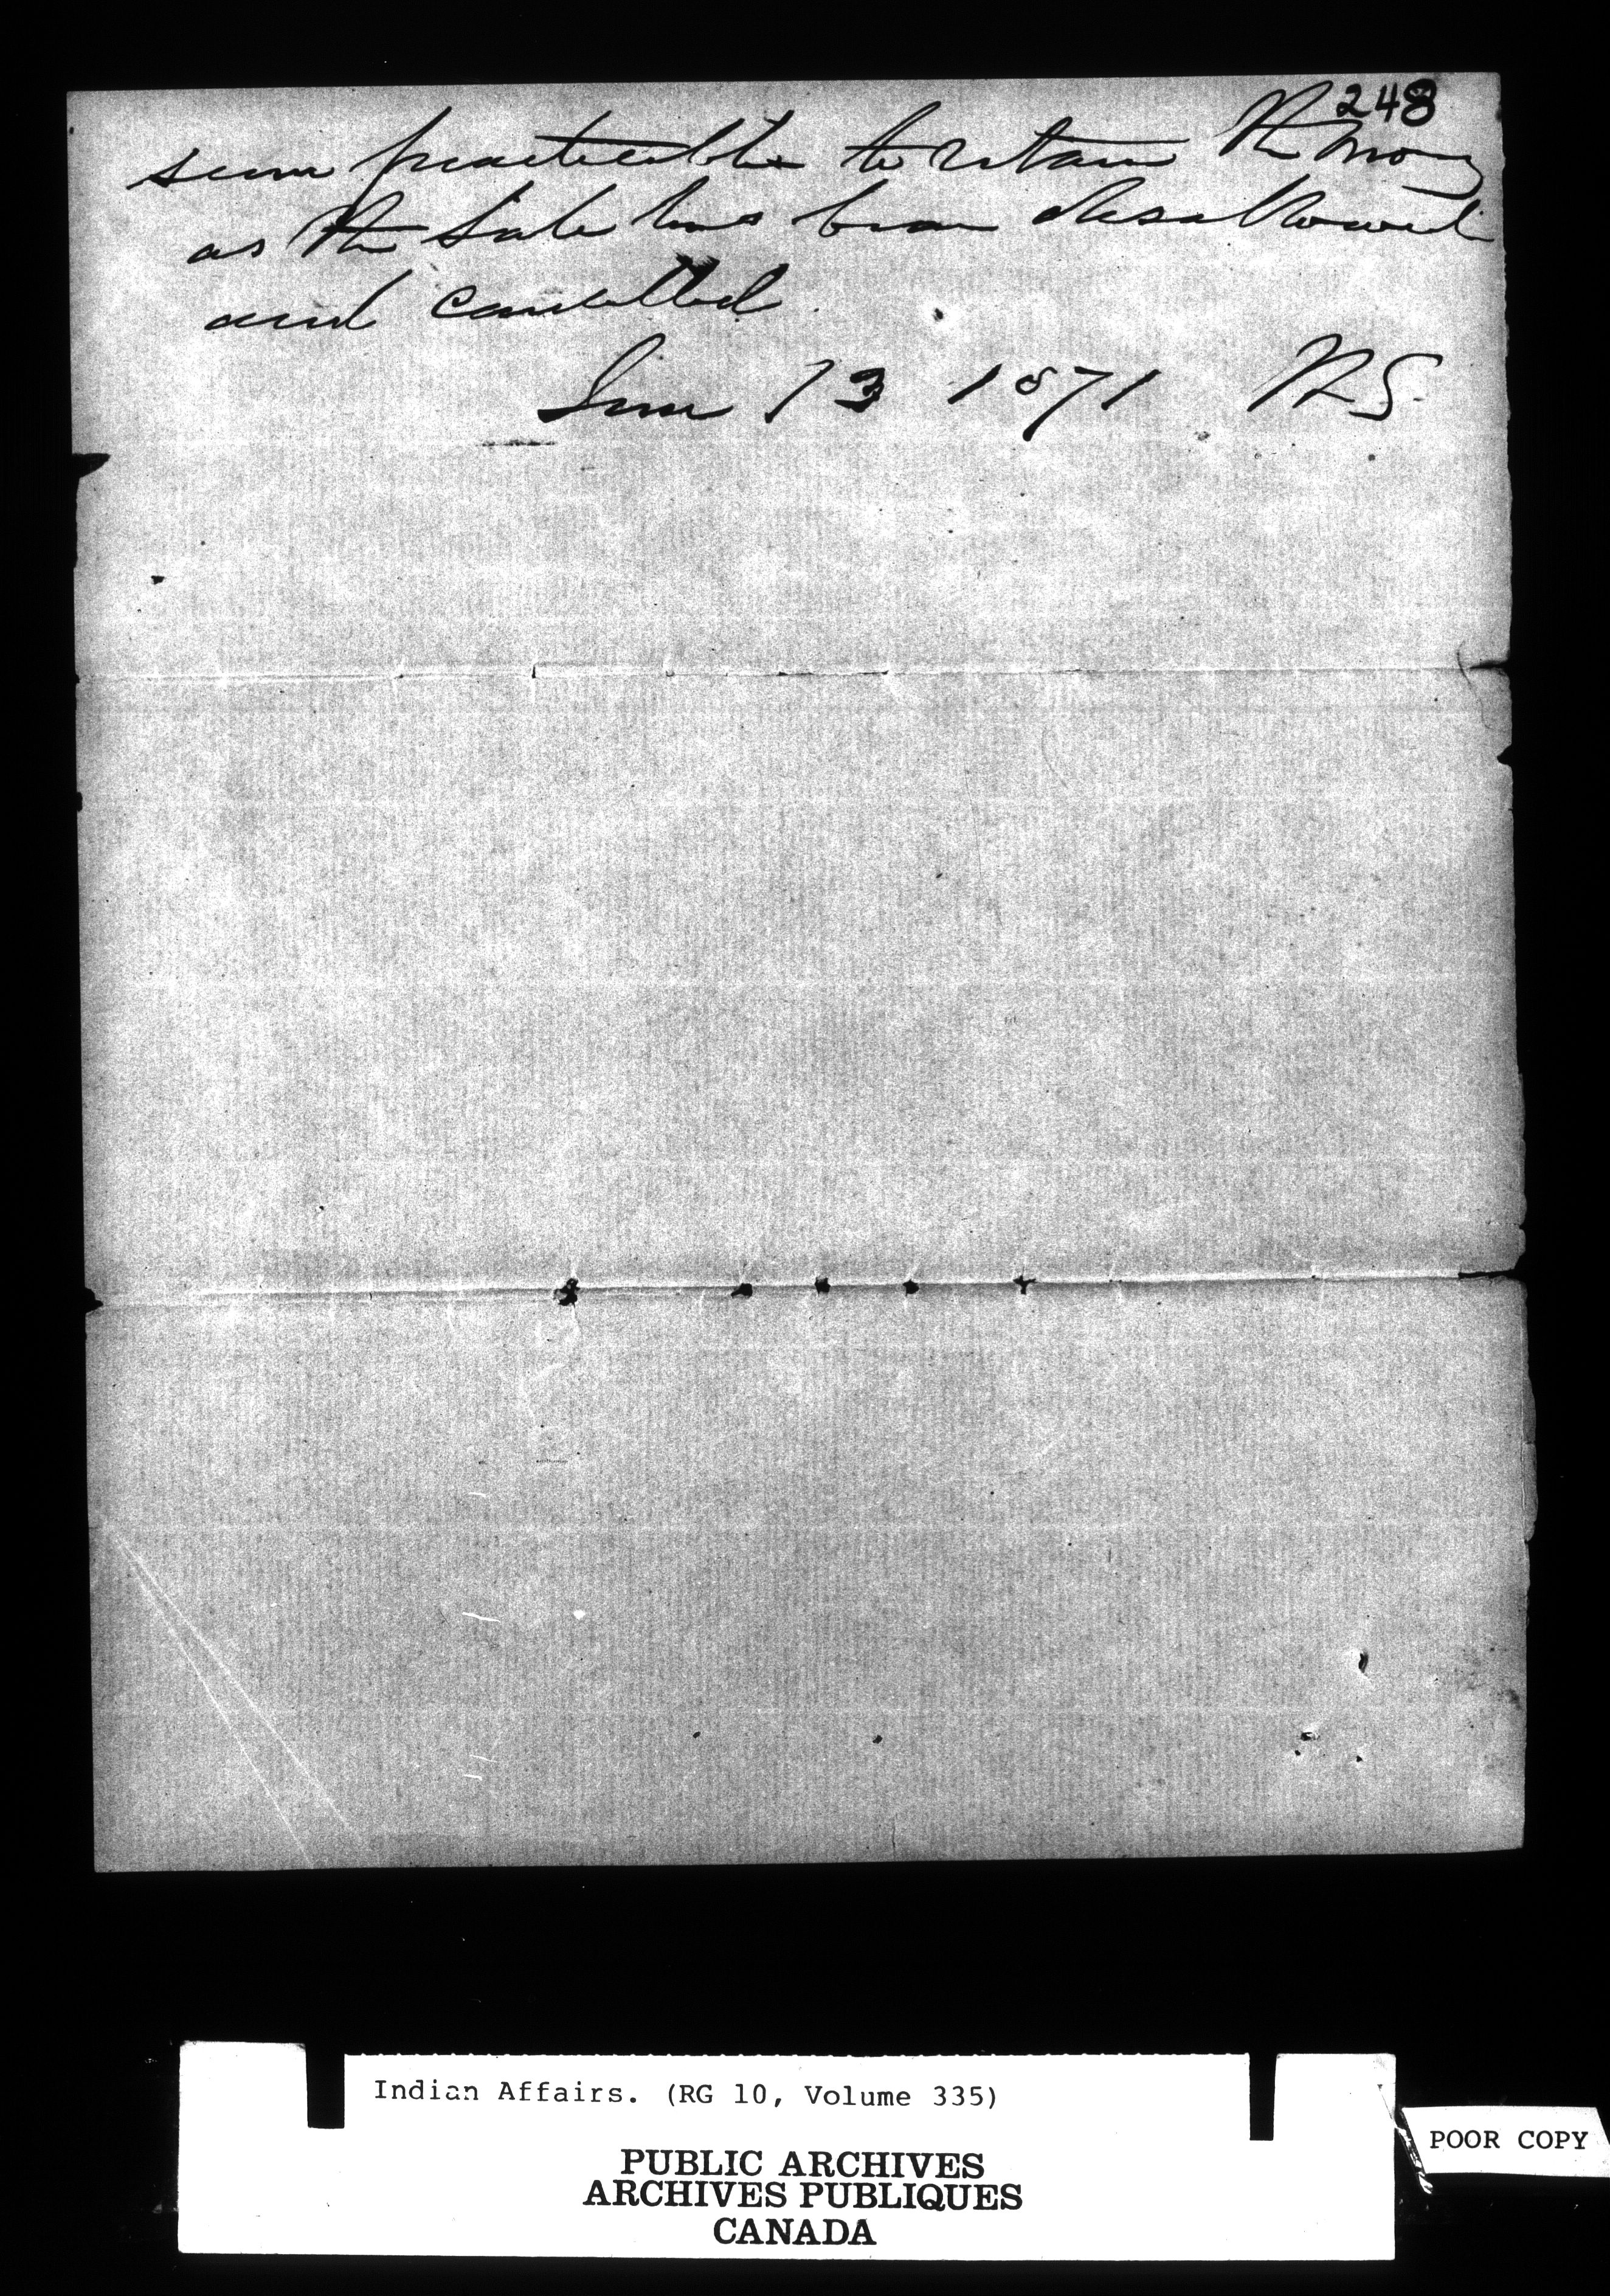 248
seem practicable to retain the money
as the Sale has been disallowed
and cancelled.
June 13 1871 WS
Indian Affairs. (RG 10, Volume 335)
PUBLIC ARCHIVES
ARCHIVES PUBLIQUES
CANADA
POOR COPY